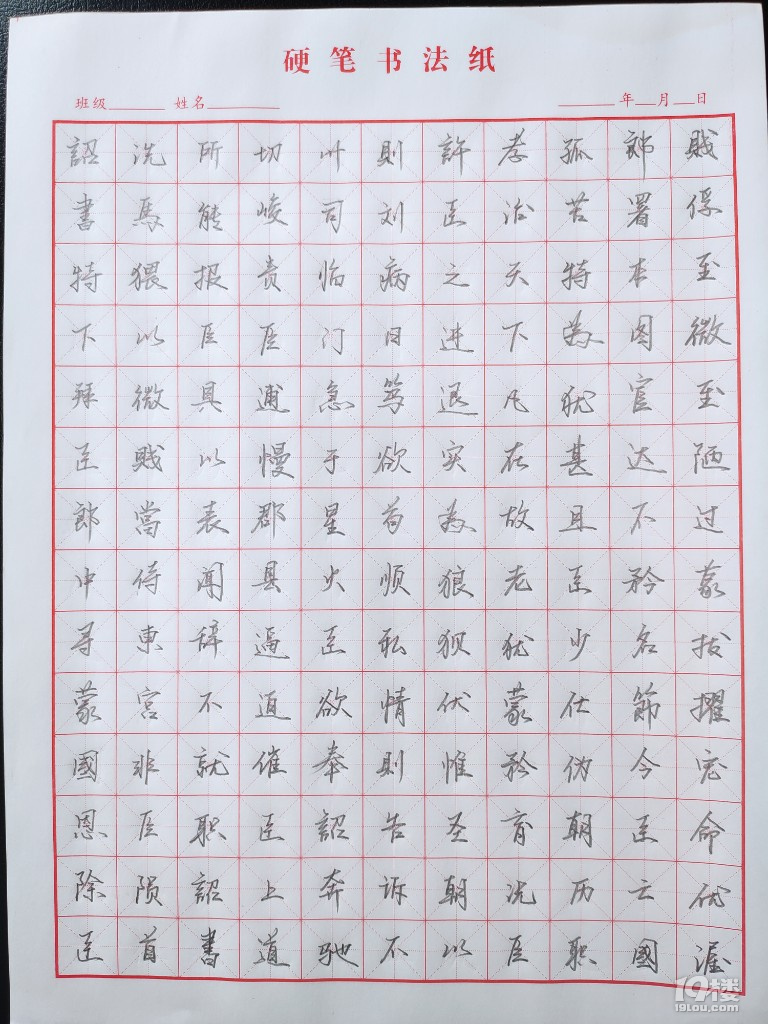 硬笔书法纸
班级 姓名 年 月 日
詔書特下拜臣郎中寻蒙國恩除臣
洗馬猥以微賤當侍東宮非臣陨首
所能报臣具以表闻辞不就职詔書
切峻责臣逋慢郡县逼迫催臣上道
州司临门急于星火臣欲奉詔奔驰
則刘病日笃欲苟顺私情則告诉不
許臣之进退实為狼狈伏惟圣朝以
孝治天下凡在故老犹蒙矜育况臣
孤苦特為犹甚且臣少仕伪朝历职
郎署本图宦达不矜名節今臣亡國
贱俘至微至陋过蒙拔擢宠命优渥
19楼
19lou.com